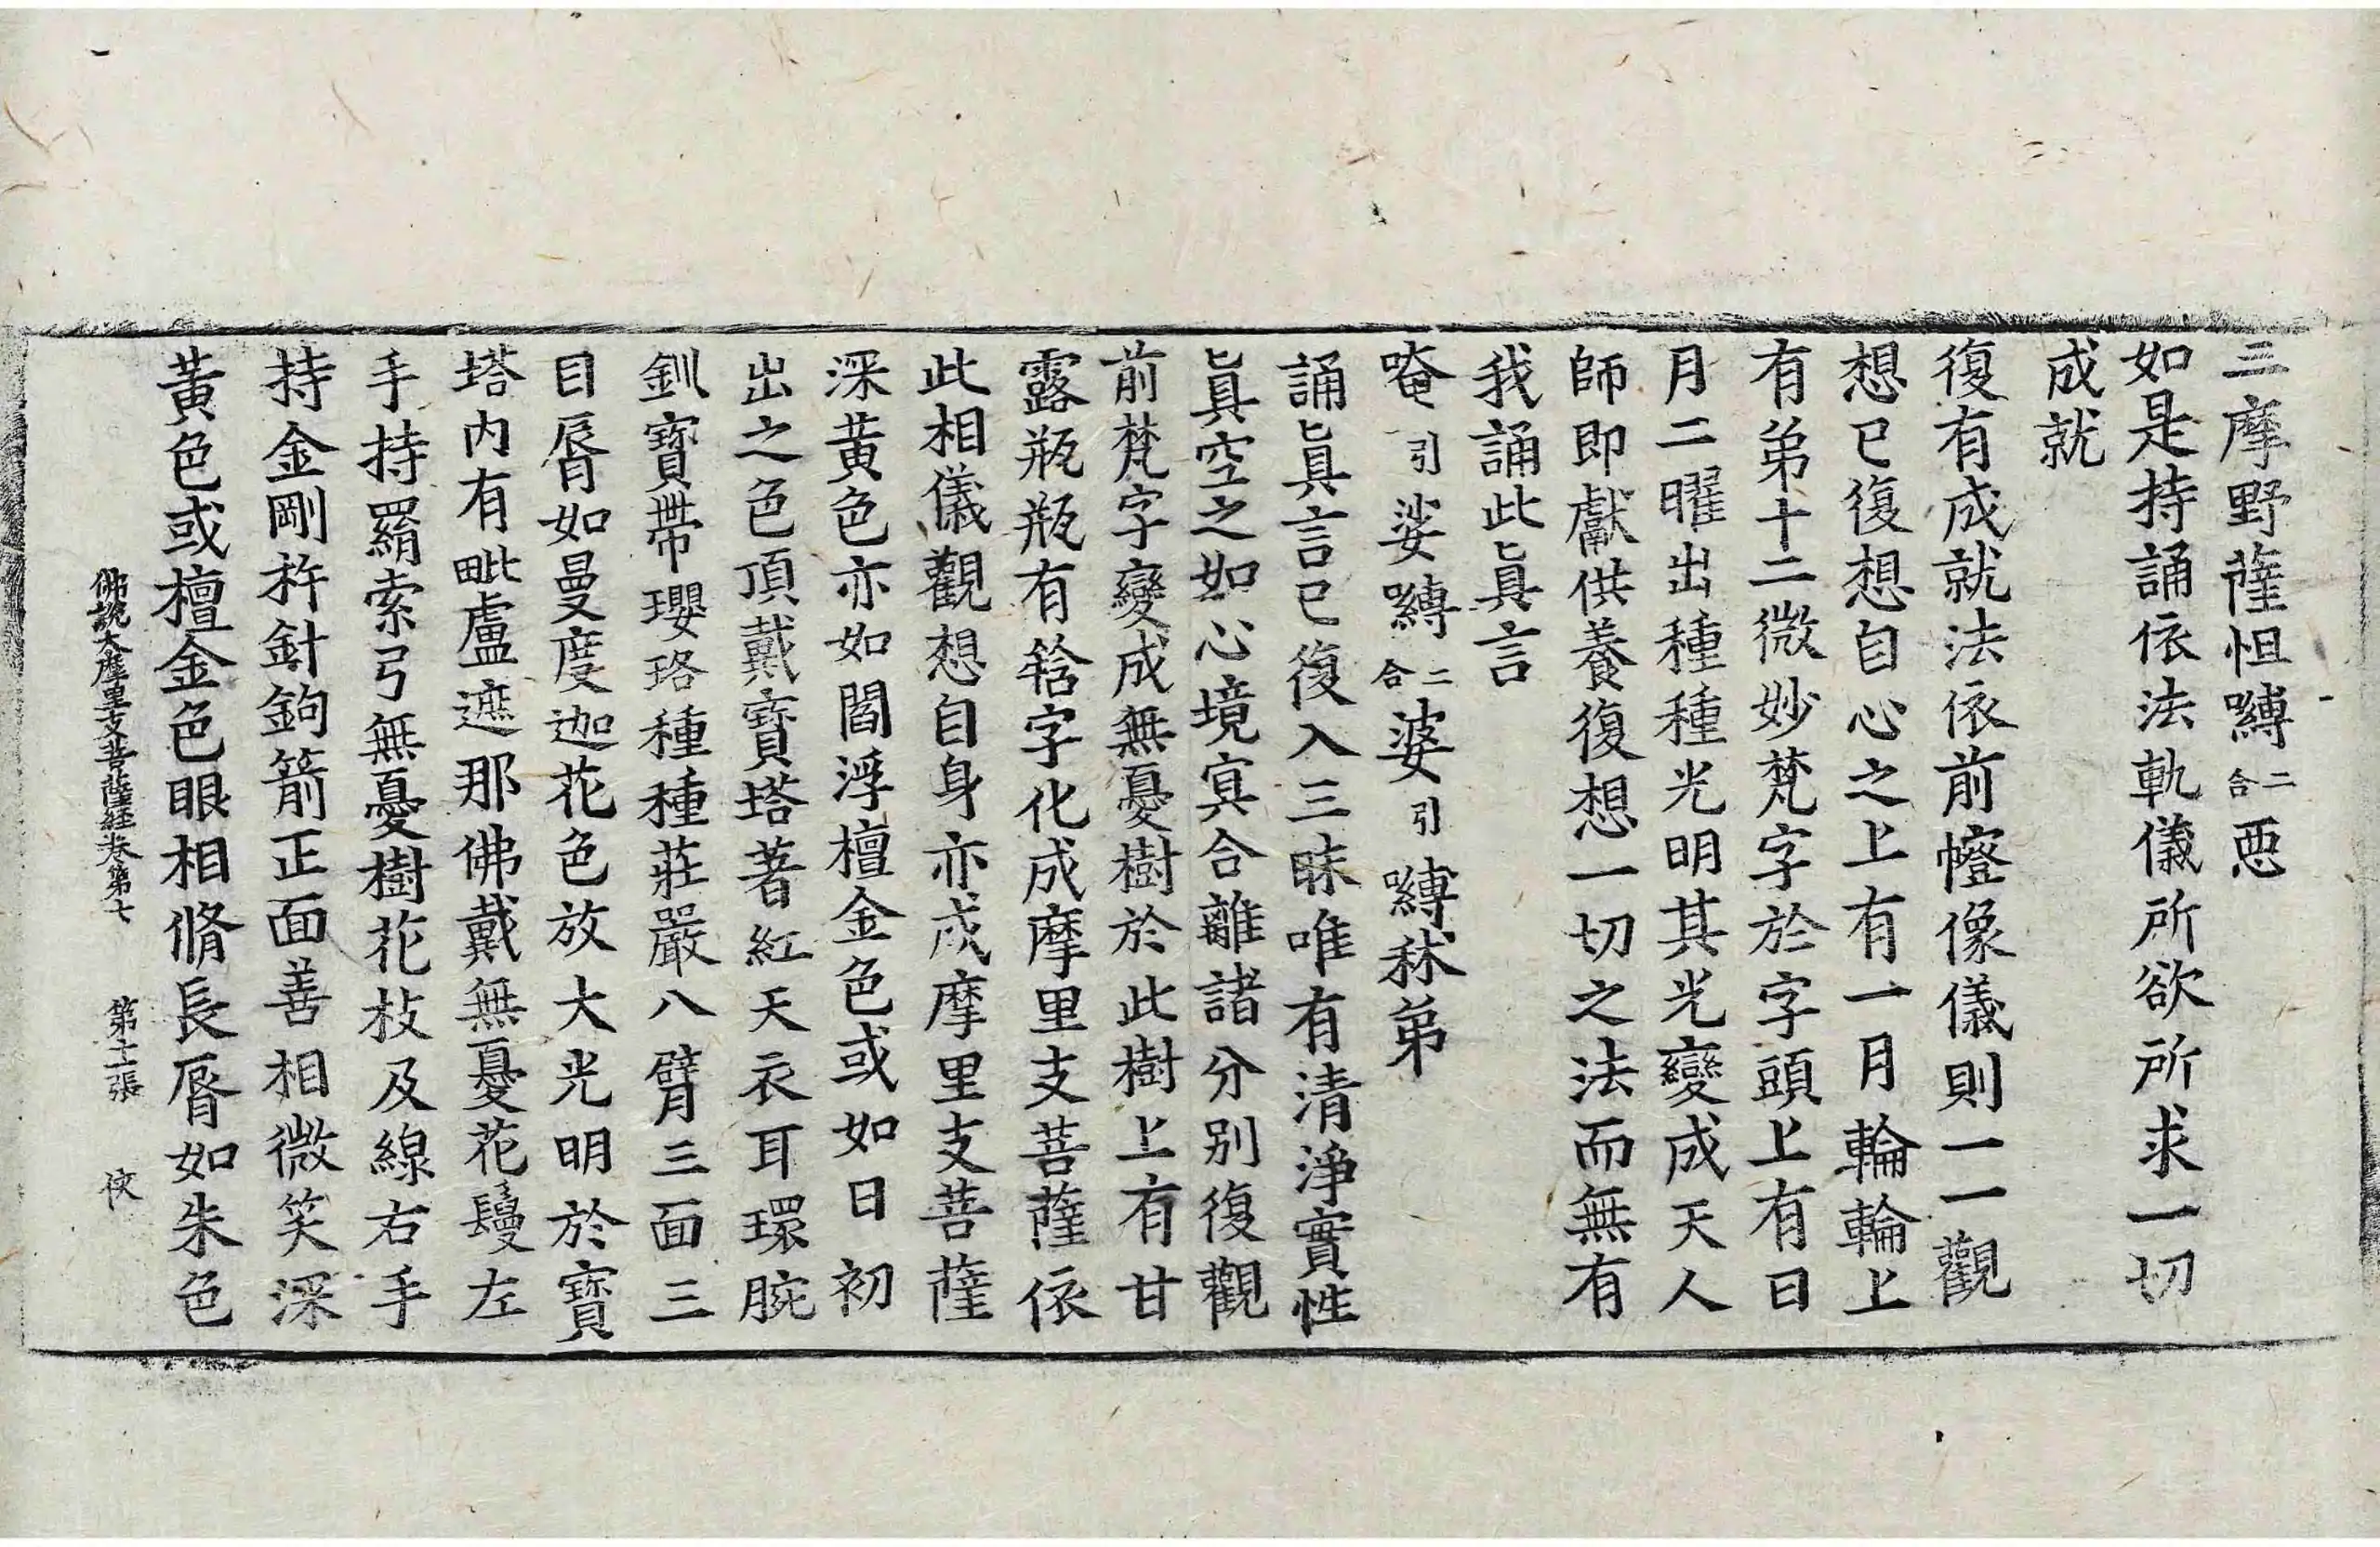 三摩野薩怛嚩二合惡
如是持誦依法軌儀所欲所求一切
成就
復有成就法依前㡧像儀則一一觀
想已復想自心之上有一月輪輪上
有弟十二微妙梵字於字頭上有日
月二曜出種種光明其光變成天人
師即獻供養復想一切之法而無有
我誦此眞言
唵引娑嚩二合婆引嚩秫弟
誦眞言已復入三昧唯有清淨實性
眞空之如心境冥合離諸分別復觀
前梵字變成無憂樹於此樹上有甘
露瓶瓶有𤚥字化成摩里支菩薩依
此相儀觀想自身亦成摩里支菩薩
深黃色亦如閻浮檀金色或如日初
出之色頂戴寶塔著紅天衣耳環腕
釧寶帶瓔珞種種莊嚴八臂三面三
目脣如曼度迦花色放大光明於寶
塔內有毗盧遮那佛戴無憂花鬘左
手持羂索弓無憂樹花枝及線右手
持金剛杵針鉤箭正面善相微笑深
黃色或檀金色眼相脩長脣如朱色
佛說大摩里支菩薩經卷第七 第十二張 俠